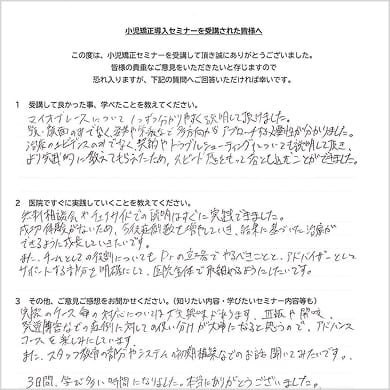 小児矯正導入セミナーを受講された皆様へ
この度は、小児矯正セミナーを受講して頂き誠にありがとうございました。
皆様の貴重なご意見をいただきたいと存じますので
恐れ入りますが、下記の質問へご回答いただければ幸いです。
1 受講して良かった事、学べたことを教えてください。
マイオブレースについて1つずつ分かりやすく説明して頂けました。
歯・顔面のみでなく、姿勢や栄養など多方向からアプローチする必要性が分かりました。
治療のエビデンスのみでなく、契約やトラブルシューティングについても説明して頂き、
より実践的に教えてもらえたため、スピード感をもって落とし込むことができました。
2 医院ですぐに実践していくことを教えてください。
無料相談会やチェアサイドでの説明はすぐに実践できました。
成功体験がないため、今後症例数を増やしていき、結果に基づいた治療が
できるように成長していきたいです。
また、それとしての役割についてもDrの立場でやるべきことと、アドバイザーとして
サポートする部分を明確にして、医院全体で取組めるようにしたいです。
3 その他、ご意見ご感想をお聞かせください。(知りたい内容・学びたいセミナー内容等も)
実際のケース毎の対応についてはまだ興味があります。
発達障害などの症例に対しての使い分けが大事になると思うので、アドバンス
コースを楽しみにしています。
また、スタッフ教育の部分やシステムの初期構築などのお話も聞いてみたいです。
3日間、学び多い時間になりました。本当にありがとうございました。